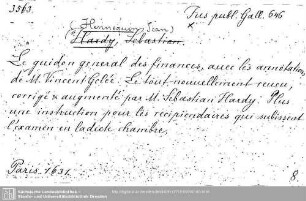 3563.
(Hennequin, Jean)
Fres publ. Gall. 646
Hardy, Sebastian
Le guidon general des finances, avec les annotations
de M. Vincent Gelée. Le tout nouvellement reveu,
corrigé & augmenté par M. Sebastian Hardy. Plus
une instruction pour les recipiendaires qui subissent
l'examen en ladicte chambre.
Paris. 1631.
8.
Sächsische Landesbibliothek -
Staats- und Universitätsbibliothek Dresden